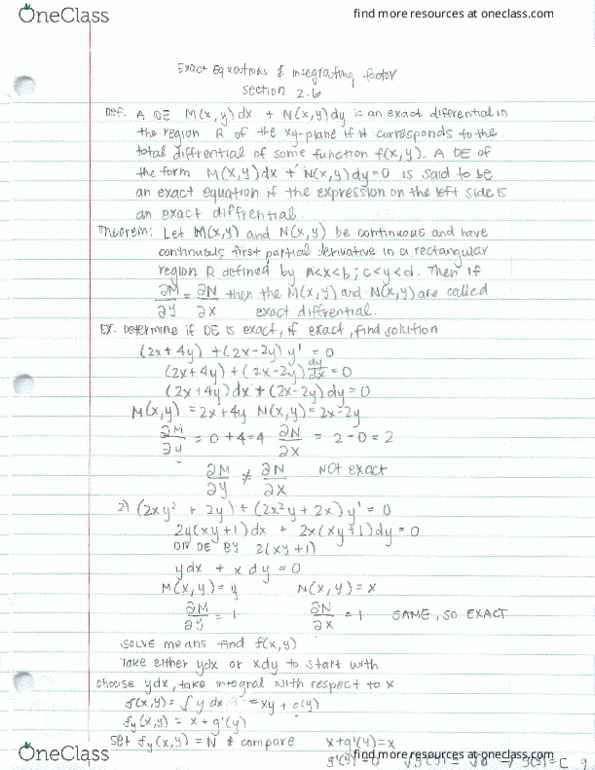 OneClass
find more resources at oneclass.com
Exact Equations & integrating factor
section 2.6
Def. A DE M(x,y)dx + N(x,y)dy is an exact diffrential in
the region R of the xy-plane if it corresponds to the
total diffrential of some function f(x,y). A DE of
the form M(x,y)dx + N(x,y)dy=0 is said to be
an exact equation if the expression on the left side is
an exact diffrential.
Theorem: Let M(x,y) and N(x,y) be continuous and have
continuous first partial derivative in a rectangular
region R defined by a<x<b; c<y<d. Then if
∂M/∂y = ∂N/∂x then the M(x,y) and N(x,y) are called
exact diffrential.
Ex. Determine if DE is exact, if exact, find solution
(2x+4y) + (2x-2y) y' = 0
(2x+4y) + (2x-2y) dy/dx = 0
(2x+4y)dx + (2x-2y)dy = 0
M(x,y) = 2x+4y N(x,y) = 2x-2y
∂M/∂y = 0+4=4 ∂N/∂x = 2-0=2
∂M/∂y ≠ ∂N/∂x NOT exact
2) (2xy² + 2y) + (2x²y + 2x) y' = 0
2y(xy+1)dx + 2x(xy+1)dy = 0
DIV DE BY 2(xy+1)
ydx + xdy = 0
M(x,y) = y N(x,y) = x
∂M/∂y = 1 ∂N/∂x = 1 SAME, SO EXACT
SOLVE means find f(x,y)
Take either ydx or xdy to start with
choose ydx, take integral with respect to x
f(x,y) = ∫y dx = xy + g(y)
fy(x,y) = x + g'(y)
Set fy(x,y) = N & compare x+g'(y)=x
OneClass
find more resources at oneclass.com
g'(y)=0 → g(y)=C